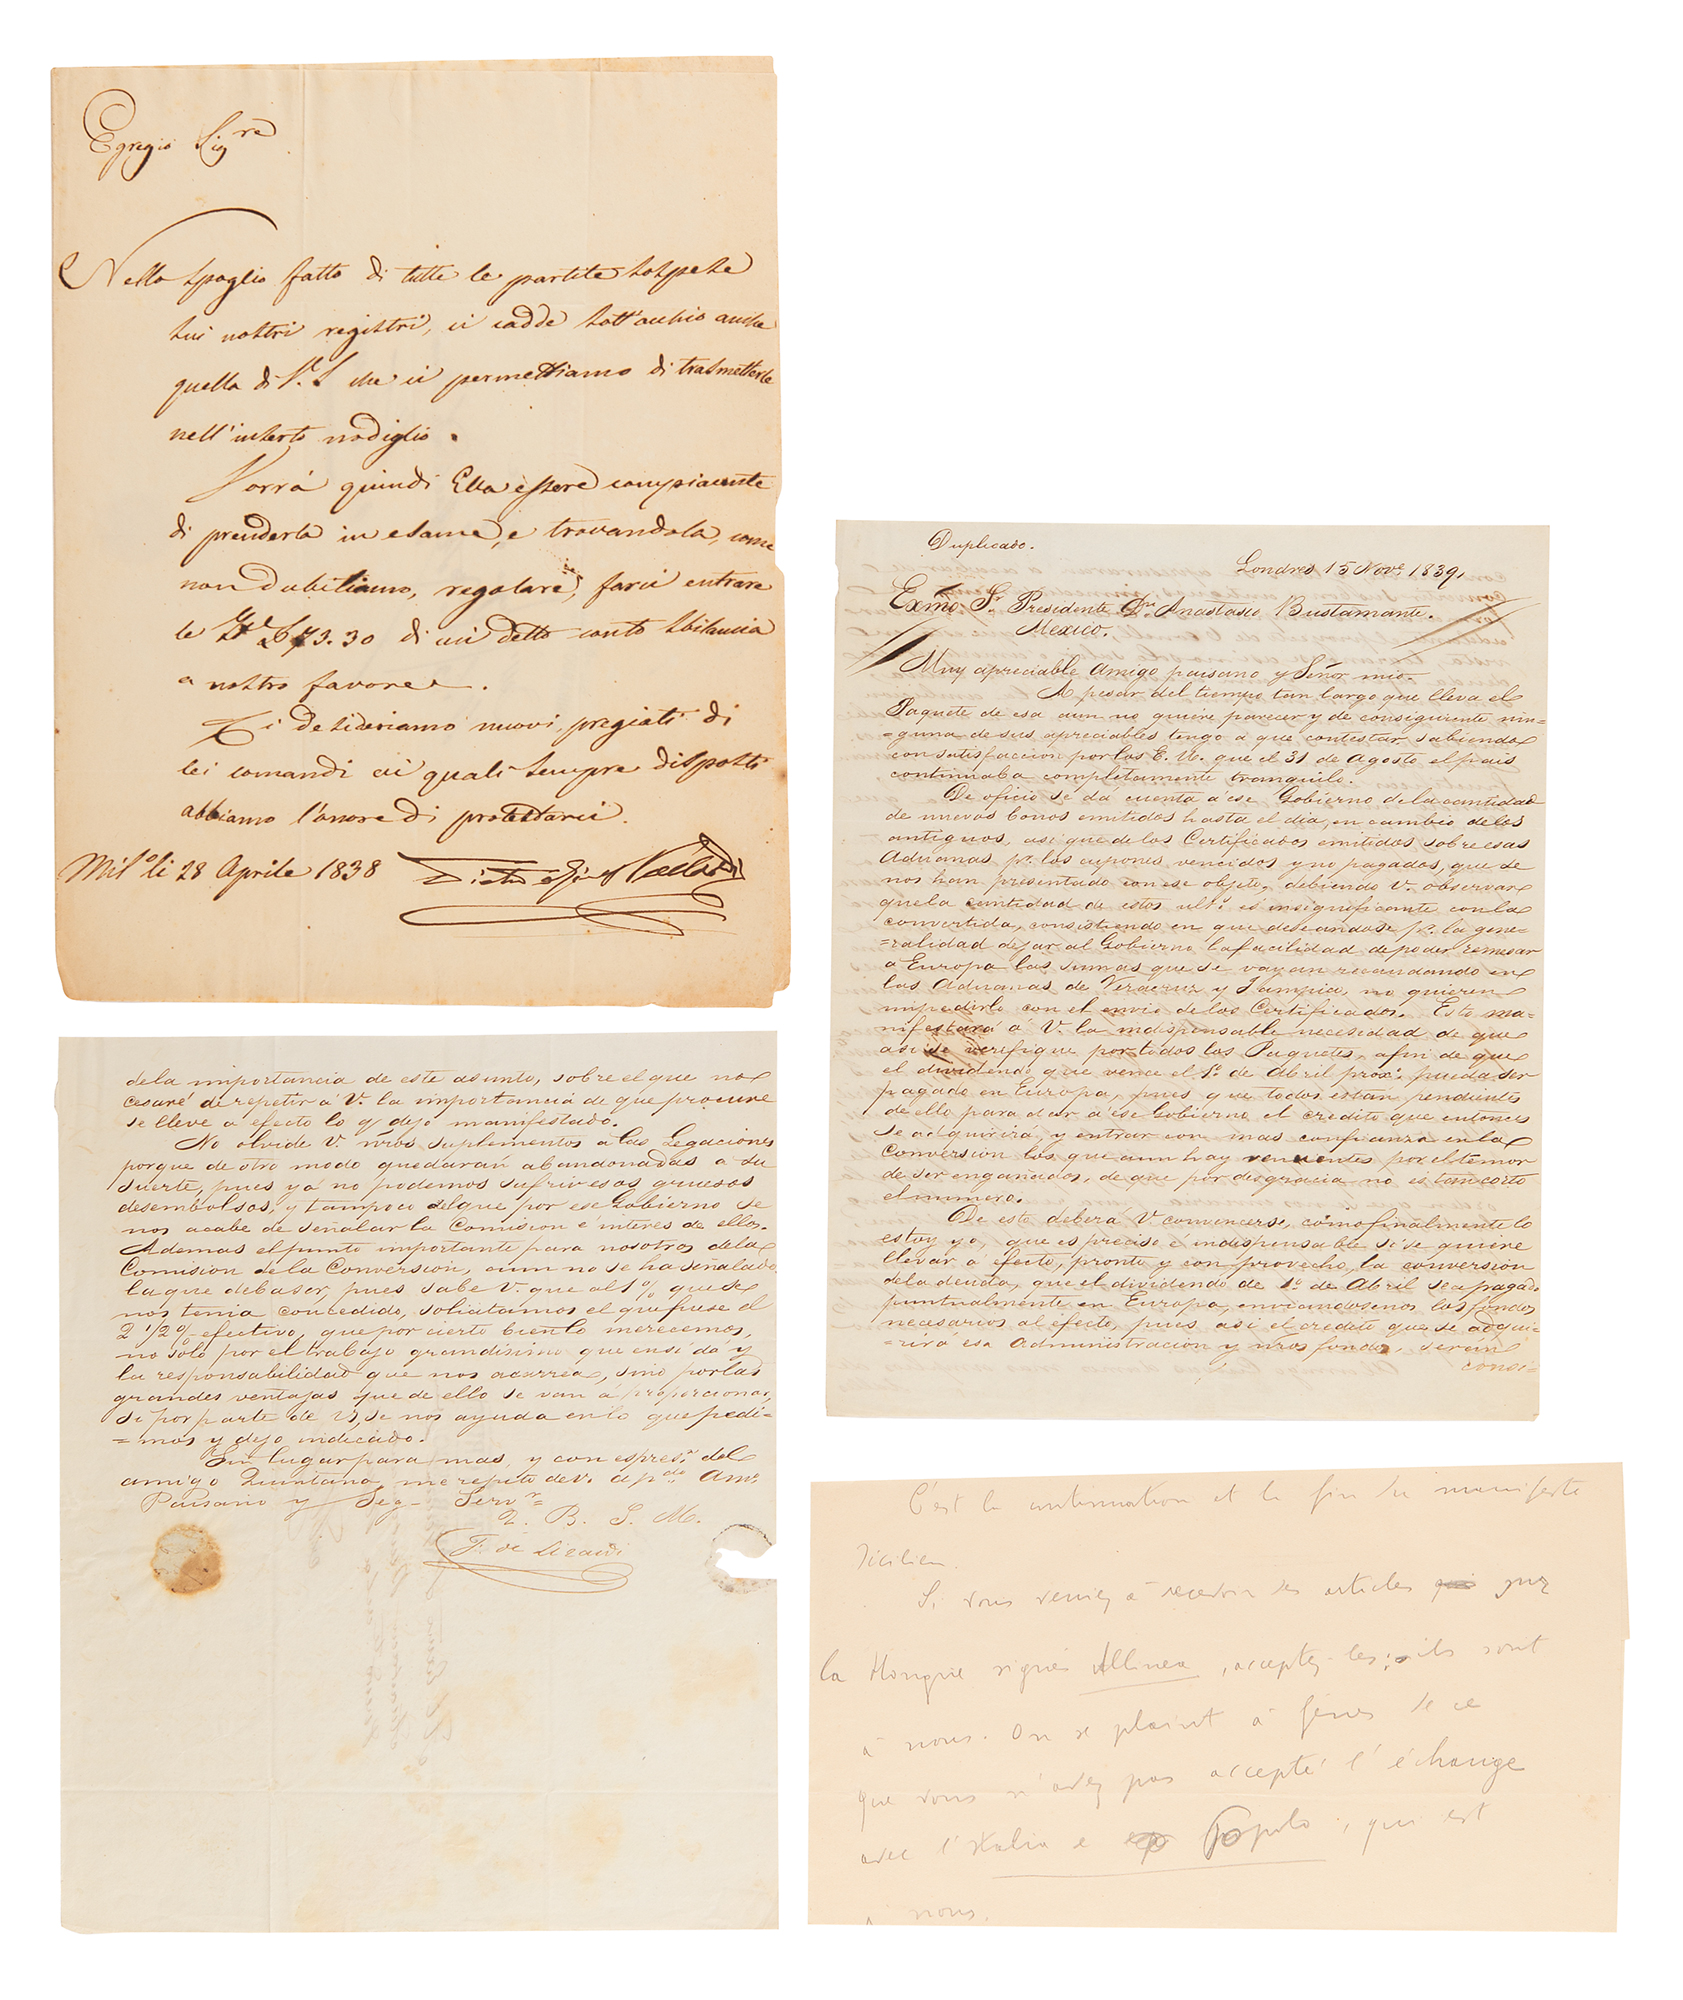 Egregio Sigre
Nello spoglio fatto di tutte le partite sospese
sui nostri registri, ci cadde sott'occhio anche
quella di V. S. che ci permettiamo di trasmetterle
nell'inserto modiglio.
Vorrà quindi Ella essere compiacente
di prenderla in esame, e trovandola, come
non dubitiamo, regolare, farci entrare
le 73.30 di cui detto conto sbilancia
a nostro favore.
Ci desideriamo nuovi pregiati di
lei comandi ai quali sempre disposti
abbiamo l'onore di protestarci.
Mil.o li 28 Aprile 1838
Duplicado.
Londres 15 Nove. 1839.
Exmo. Sr. Presidente Dn. Anastasio Bustamante.
Mexico.
Muy apreciable amigo paisano y Señor mio.
A pesar del tiempo tan largo que lleva el
Paquete de esa aun no quiere parecer y de consiguiente nin=
=guna de sus apreciables tengo a que contestar, sabiendo
con satisfaccion por los E. U. que el 31 de Agosto el pais
continuaba completamente tranquilo.
De oficio se dá cuenta á ese Gobierno de la cantidad
de nuevos bonos emitidos hasta el dia, en cambio de los
antiguos, asi que de los Certificados emitidos sobre esas
Aduanas pr. los cupones vencidos y no pagados, que se
nos han presentado con ese objeto, debiendo V. observar
que la cantidad de estos ults. es insignificante con la
convertida, consistiendo en que deseandose pr. la gene=
=ralidad dejar al Gobierno la facilidad de poder remesar
a Europa las sumas que se vayan recaudando en
las Aduanas de Veracruz y Tampico, no quieren
impedirlo con el envio de los Certificados. Esto ma=
nifestará á V. la indispensable necesidad de que
asi se verifique por todos los Paquetes, afin de que
el dividendo que vence el 1o. de Abril proxo. pueda ser
pagado en Europa, pues que todos estan pendientes
de ello para dar á ese Gobierno el credito que entonces
se adquirirá, y entrar con mas confianza en la
Conversion los que aun hay renuentes por el temor
de ser engañados, de que por desgracia no es tan corto
el numero.
De esto deberá V. convencerse, como finalmente lo
estoy yo, que es preciso é indispensable si se quiere
llevar á efecto, pronto y con provecho, la conversion
de la deuda, que el dividendo de 1o. de Abril sea pagado
puntualmente en Europa, enviandosenos los fondos
necesarios al efecto, pues asi el credito que se adqui=
=rirá esa Administracion y ntros fondos, serán
consi=
de la importancia de este asunto, sobre el que no
cesaré de repetir á V. la importancia de que procure
se lleve a efecto lo q dejo manifestado.
No olvide V. ntros suplementos a las Legaciones
porque de otro modo quedarán abandonadas a su
suerte, pues ya no podemos sufrir esos gruesos
desembolsos, y tampoco del que por ese Gobierno se
nos acabe de señalar la Comision é interés de ellos.
Ademas el punto importante para nosotros de la
Comision de la Conversion, aun no se ha señalado
la que deba ser, pues sabe V. que al 1% que se
nos tenia concedido, solicitamos el que fuese el
2 1/2% efectivo, que por cierto bien lo merecemos,
no solo por el trabajo grandisimo que ensi dá y
la responsabilidad que nos acarrea, sino por las
grandes ventajas que de ello se van á proporcionar,
si por parte de VS, se nos ayuda en lo que pedi=
=mos y dejo indicado.
Sin lugar para mas, y con espresn. del
amigo Quintana me repito de V. apdo. Amo.
Paisano y Seg. Servr.
Q. B. S. M.
F. de Lizardi
C'est la continuation et la fin du manifeste
sicilien.
Si vous veniez à recevoir des articles sur
la Hongrie signés Allinea, acceptez-les; ils sont
à nous. On se plaint à Gênes de ce
que vous n'avez pas accepté l'échange
avec l'Italia e Popolo, qui est
à nous.